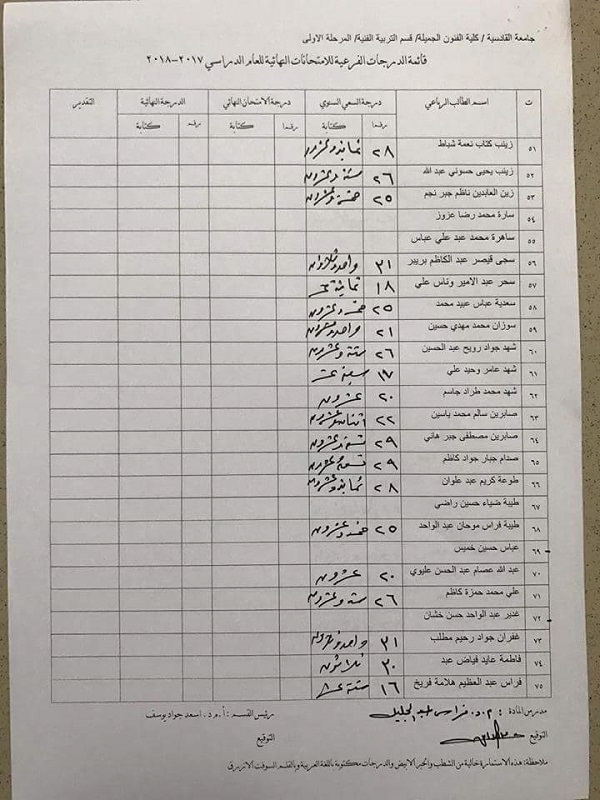 جامعة القادسية / كلية الفنون الجميلة/ قسم التربية الفنية/ المرحلة الاولى
قائمة الدرجات الفرعية للامتحانات النهائية للعام الدراسي ٢٠١٧-٢٠١٨
ت اسم الطالب الرباعي درجة السعي السنوي درجة الامتحان النهائي الدرجة النهائية التقدير
رقما كتابة رقما كتابة رقما كتابة
٥١ زينب كتاب نعمة شباط ٢٨ ثمانية وعشرون
٥٢ زينب يحيى حسوني عبد الله ٢٦ ستة وعشرون
٥٣ زين العابدين ناظم جبر نجم ٢٥ خمسة وعشرون
٥٤ سارة محمد رضا عزوز
٥٥ ساهرة محمد عبد علي عباس
٥٦ سجى قيصر عبد الكاظم بريبر ٣١ واحد وثلاثون
٥٧ سحر عبد الامير وناس علي ١٨ ثمانية عشر
٥٨ سعدية عباس عبيد محمد ٢٥ خمسة وعشرون
٥٩ سوزان محمد مهدي حسين ٢١ واحد وعشرون
٦٠ شهد جواد رويح عبد الحسين ٢٦ ستة وعشرون
٦١ شهد عامر وحيد علي ١٧ سبعة عشر
٦٢ شهد محمد طراد جاسم ٢٠ عشرون
٦٣ صابرين سالم محمد ياسين ٢٢ اثنان وعشرون
٦٤ صابرين مصطفى جبر هاني ٢٩ تسعة وعشرون
٦٥ صدام جبار جواد كاظم ٢٩ تسعة وعشرون
٦٦ طوعة كريم عبد علوان ٢٨ ثمانية وعشرون
٦٧ طيبة ضياء حسين راضي
٦٨ طيبة فراس موحان عبد الواحد ٢٥ خمسة وعشرون
٦٩ عباس حسين خميس
٧٠ عبد الله عصام عبد الحسن عليوي ٢٠ عشرون
٧١ علي محمد حمزة كاظم ٢٦ ستة وعشرون
٧٢ غدير عبد الواحد حسن خشان
٧٣ غفران جواد رحيم مطلب ٣١ واحد وثلاثون
٧٤ فاطمة عايد فياض عبد ٣٠ ثلاثون
٧٥ فراس عبد العظيم هلامة فريخ ١٦ ستة عشر
مدرس المادة : م.د. فراس عبد الجليل رئيس القسم : أ.م.د. اسعد جواد يوسف
التوقيع التوقيع
ملاحظة: هذه الاستمارة خالية من الشطب والحبر الابيض والدرجات مكتوبة باللغة العربية وبالقلم السوفت الازرق